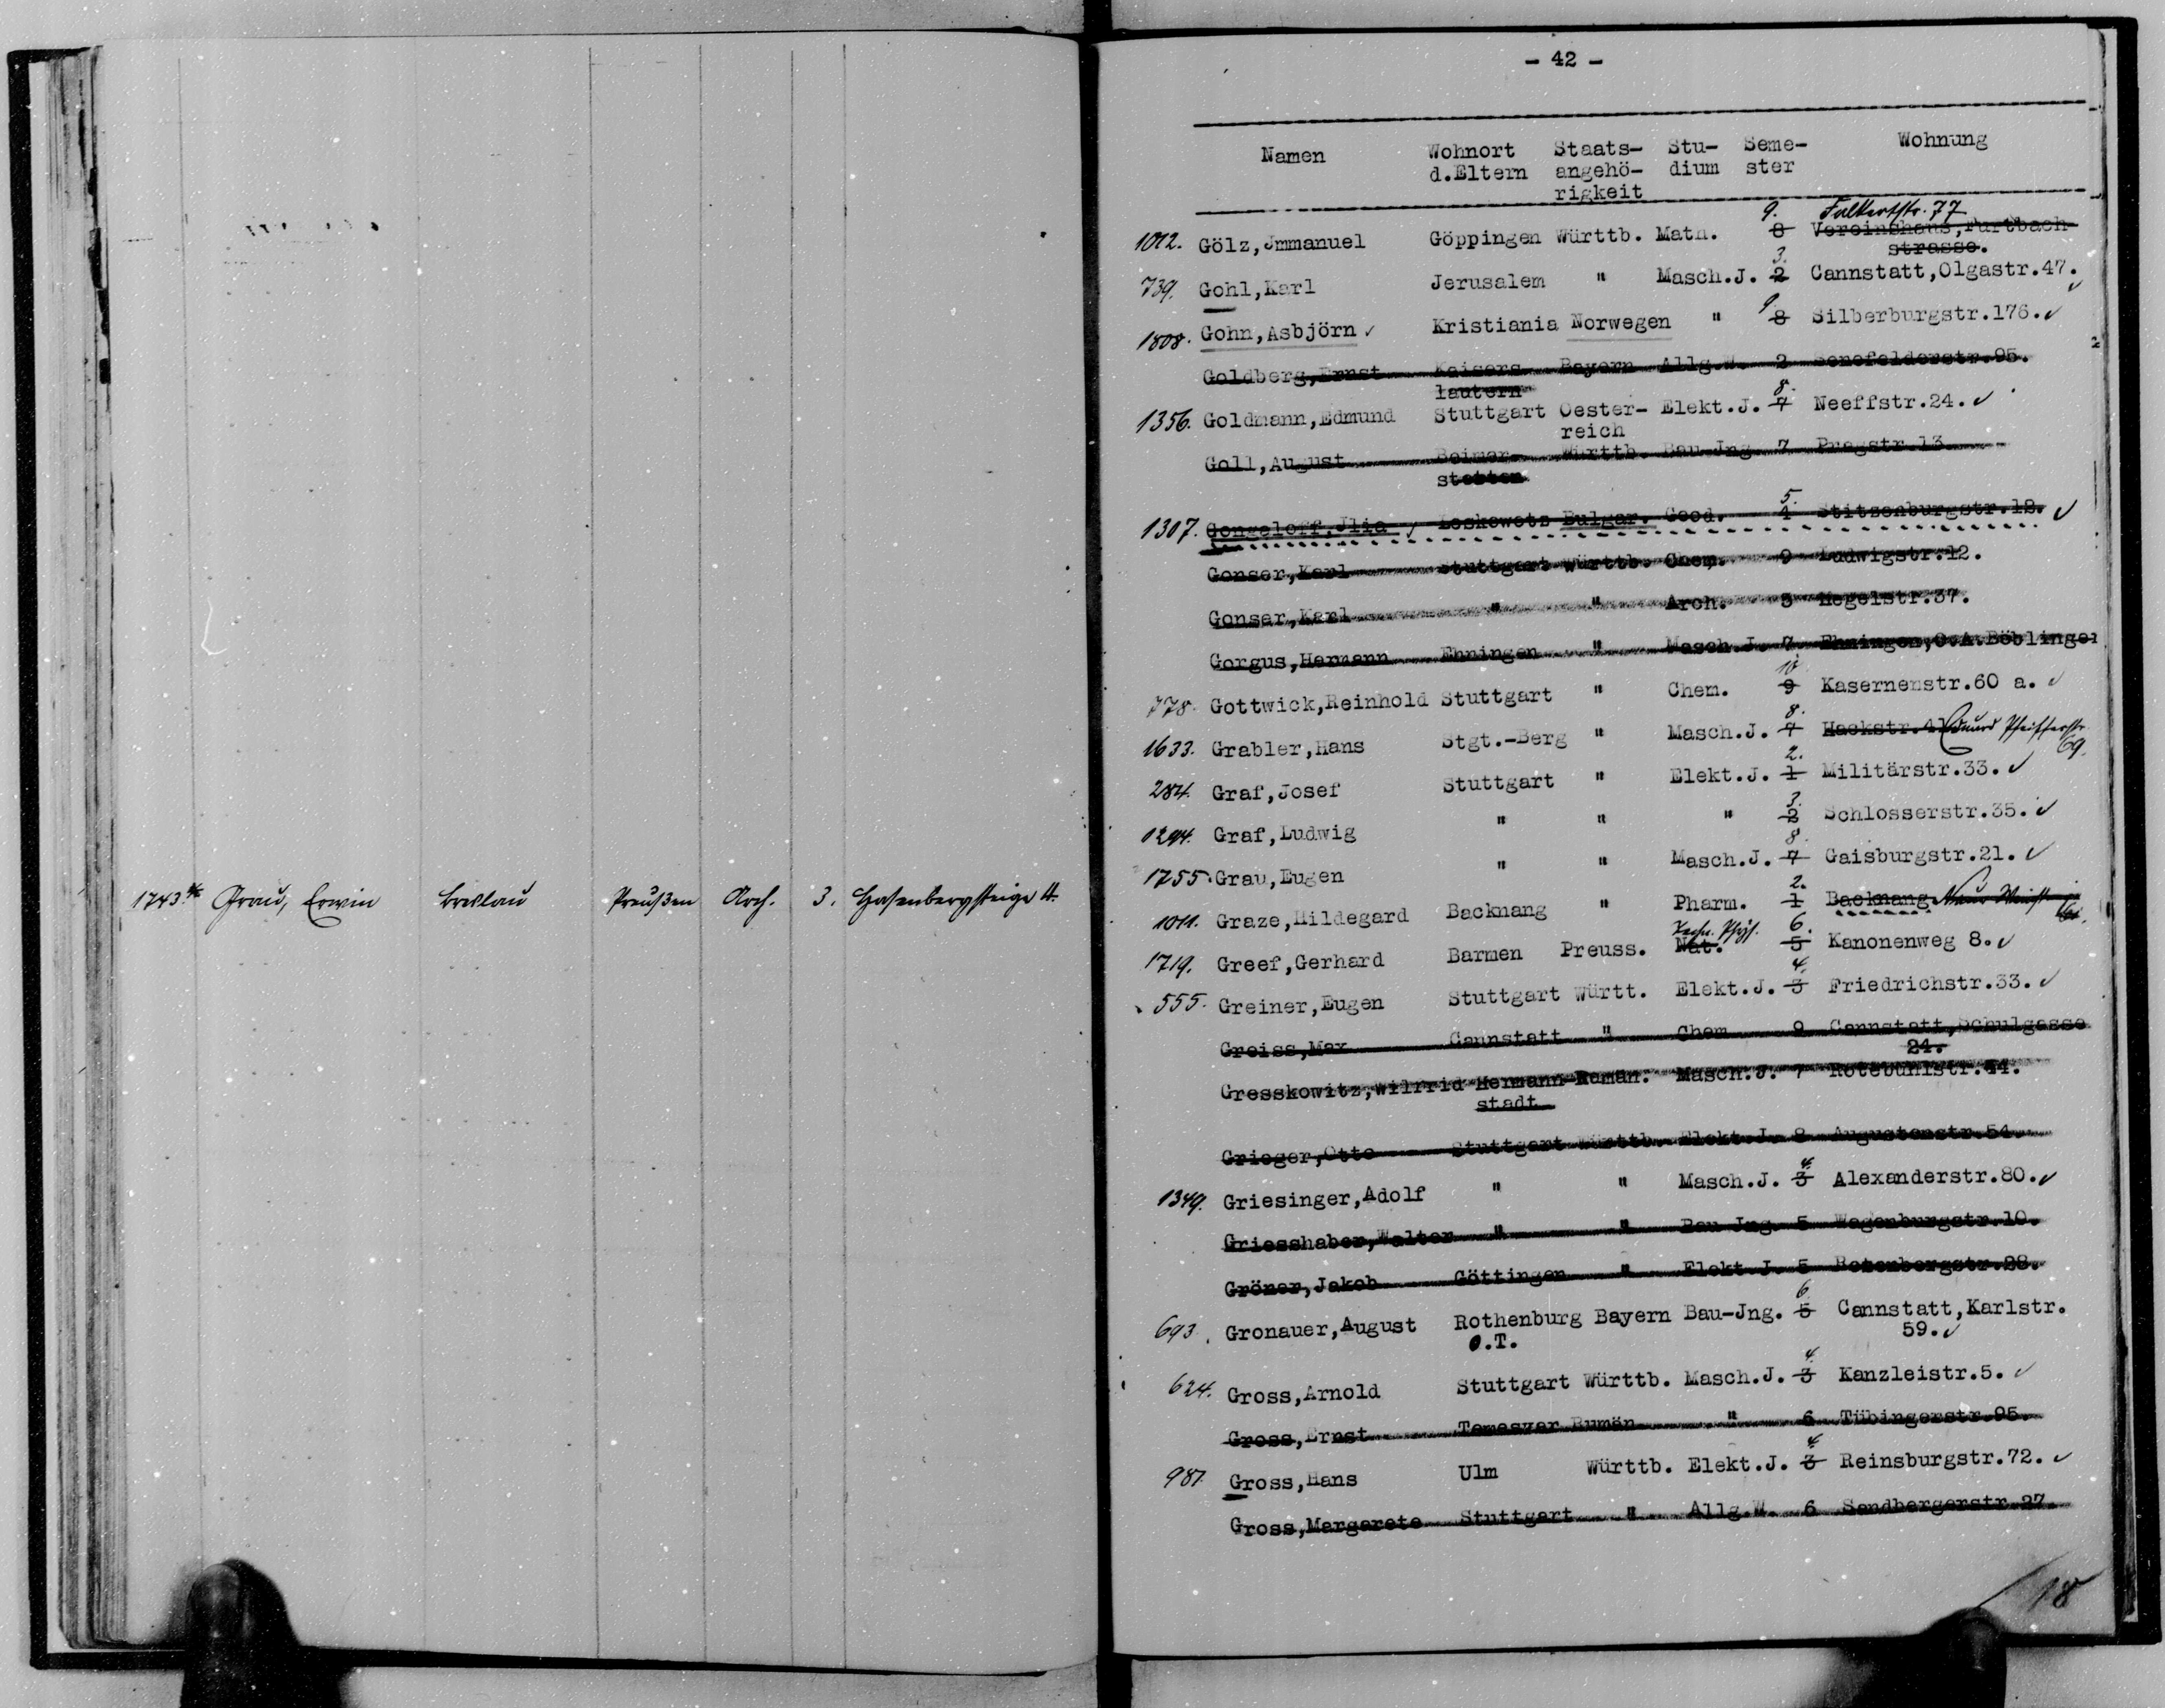 1743. Grau, Erwin Breslau Preußen Arch. 3. Hasenbergsteige 4.
- 42 -
Namen Wohnort Staats- Stu- Seme- Wohnung
d.Eltern angehö- dium ster
rigkeit
9. Falkertstr. 77
1012. Gölz,Jmmanuel Göppingen Württb. Math. 8 Vereinshaus,Furtbach-
strasse.
3.
739. Gohl,Karl Jerusalem " Masch.J. 2 Cannstatt,Olgastr.47.
9
1808. Gohn,Asbjörn ✓ Kristiania Norwegen " 8 Silberburgstr.176. ✓
Goldberg,Ernst Kaisers Bayern Allg.W. 2 Senefelderstr.95.
lautern
8.
1356. Goldmann,Edmund Stuttgart Oester- Elekt.J. 7 Neeffstr.24. ✓
reich
Goll,August Beimer- Württb. Bau-Jng. 7 Pragstr.13
stetten
5.
1307. Gongeloff,Jlia Leskowetz Bulgar. Geod. 4 Stitzenburgstr.12. ✓
Gonser,Karl Stuttgart Württb. Chem. 9 Ludwigstr.12.
Gonser,Karl " " Arch. 3 Hegelstr.37.
Gorgus,Hermann Ehningen " Masch.J. 7 Ehningen,O.A.Böblingen
10
778. Gottwick,Reinhold Stuttgart " Chem. 9 Kasernenstr.60 a. ✓
8.
1633. Grabler,Hans Stgt.-Berg " Masch.J. 7 Hackstr. Eduard Pfeifferstr.
69.
2.
284. Graf,Josef Stuttgart " Elekt.J. 1 Militärstr.33. ✓
3.
1294. Graf,Ludwig " " " 2 Schlosserstr.35. ✓
8.
1755. Grau,Eugen " " Masch.J. 7 Gaisburgstr.21. ✓
2.
1011. Graze,Hildegard Backnang " Pharm. 1 Backnang. Neue Weinsteige
Techn. Phys. 6.
1719. Greef,Gerhard Barmen Preuss. Nat. 5 Kanonenweg 8. ✓
4.
555. Greiner,Eugen Stuttgart Württ. Elekt.J. 3 Friedrichstr.33. ✓
Greiss,Max Cannstatt " Chem 9 Cannstatt,Schulgasse
24.
Gresskowitz,Wilfrid Hermann- Romän. Masch.J. 7 Rotebühlstr.44.
stadt
Grieger,Otto Stuttgart Württb. Elekt.J. 8 Augustenstr.54.
4.
1349. Griesinger,Adolf " " Masch.J. 3 Alexanderstr.80. ✓
Griesshaber,Walter " " Bau Jng. 5 Wagenburgstr.10.
Gröner,Jakob Göttingen " Elekt.J. 5 Rotenbergstr.28.
6
693. Gronauer,August Rothenburg Bayern Bau-Jng. 5 Cannstatt,Karlstr.
o.T. 59. ✓
4.
624. Gross,Arnold Stuttgart Württb. Masch.J. 3 Kanzleistr.5. ✓
Gross,Ernst Temesvar Rumän " 6 Tübingerstr.95.
4.
987. Gross,Hans Ulm Württb. Elekt.J. 3 Reinsburgstr.72. ✓
Gross,Margarete Stuttgart " Allg.W. 6 Sandbergerstr.27.
18